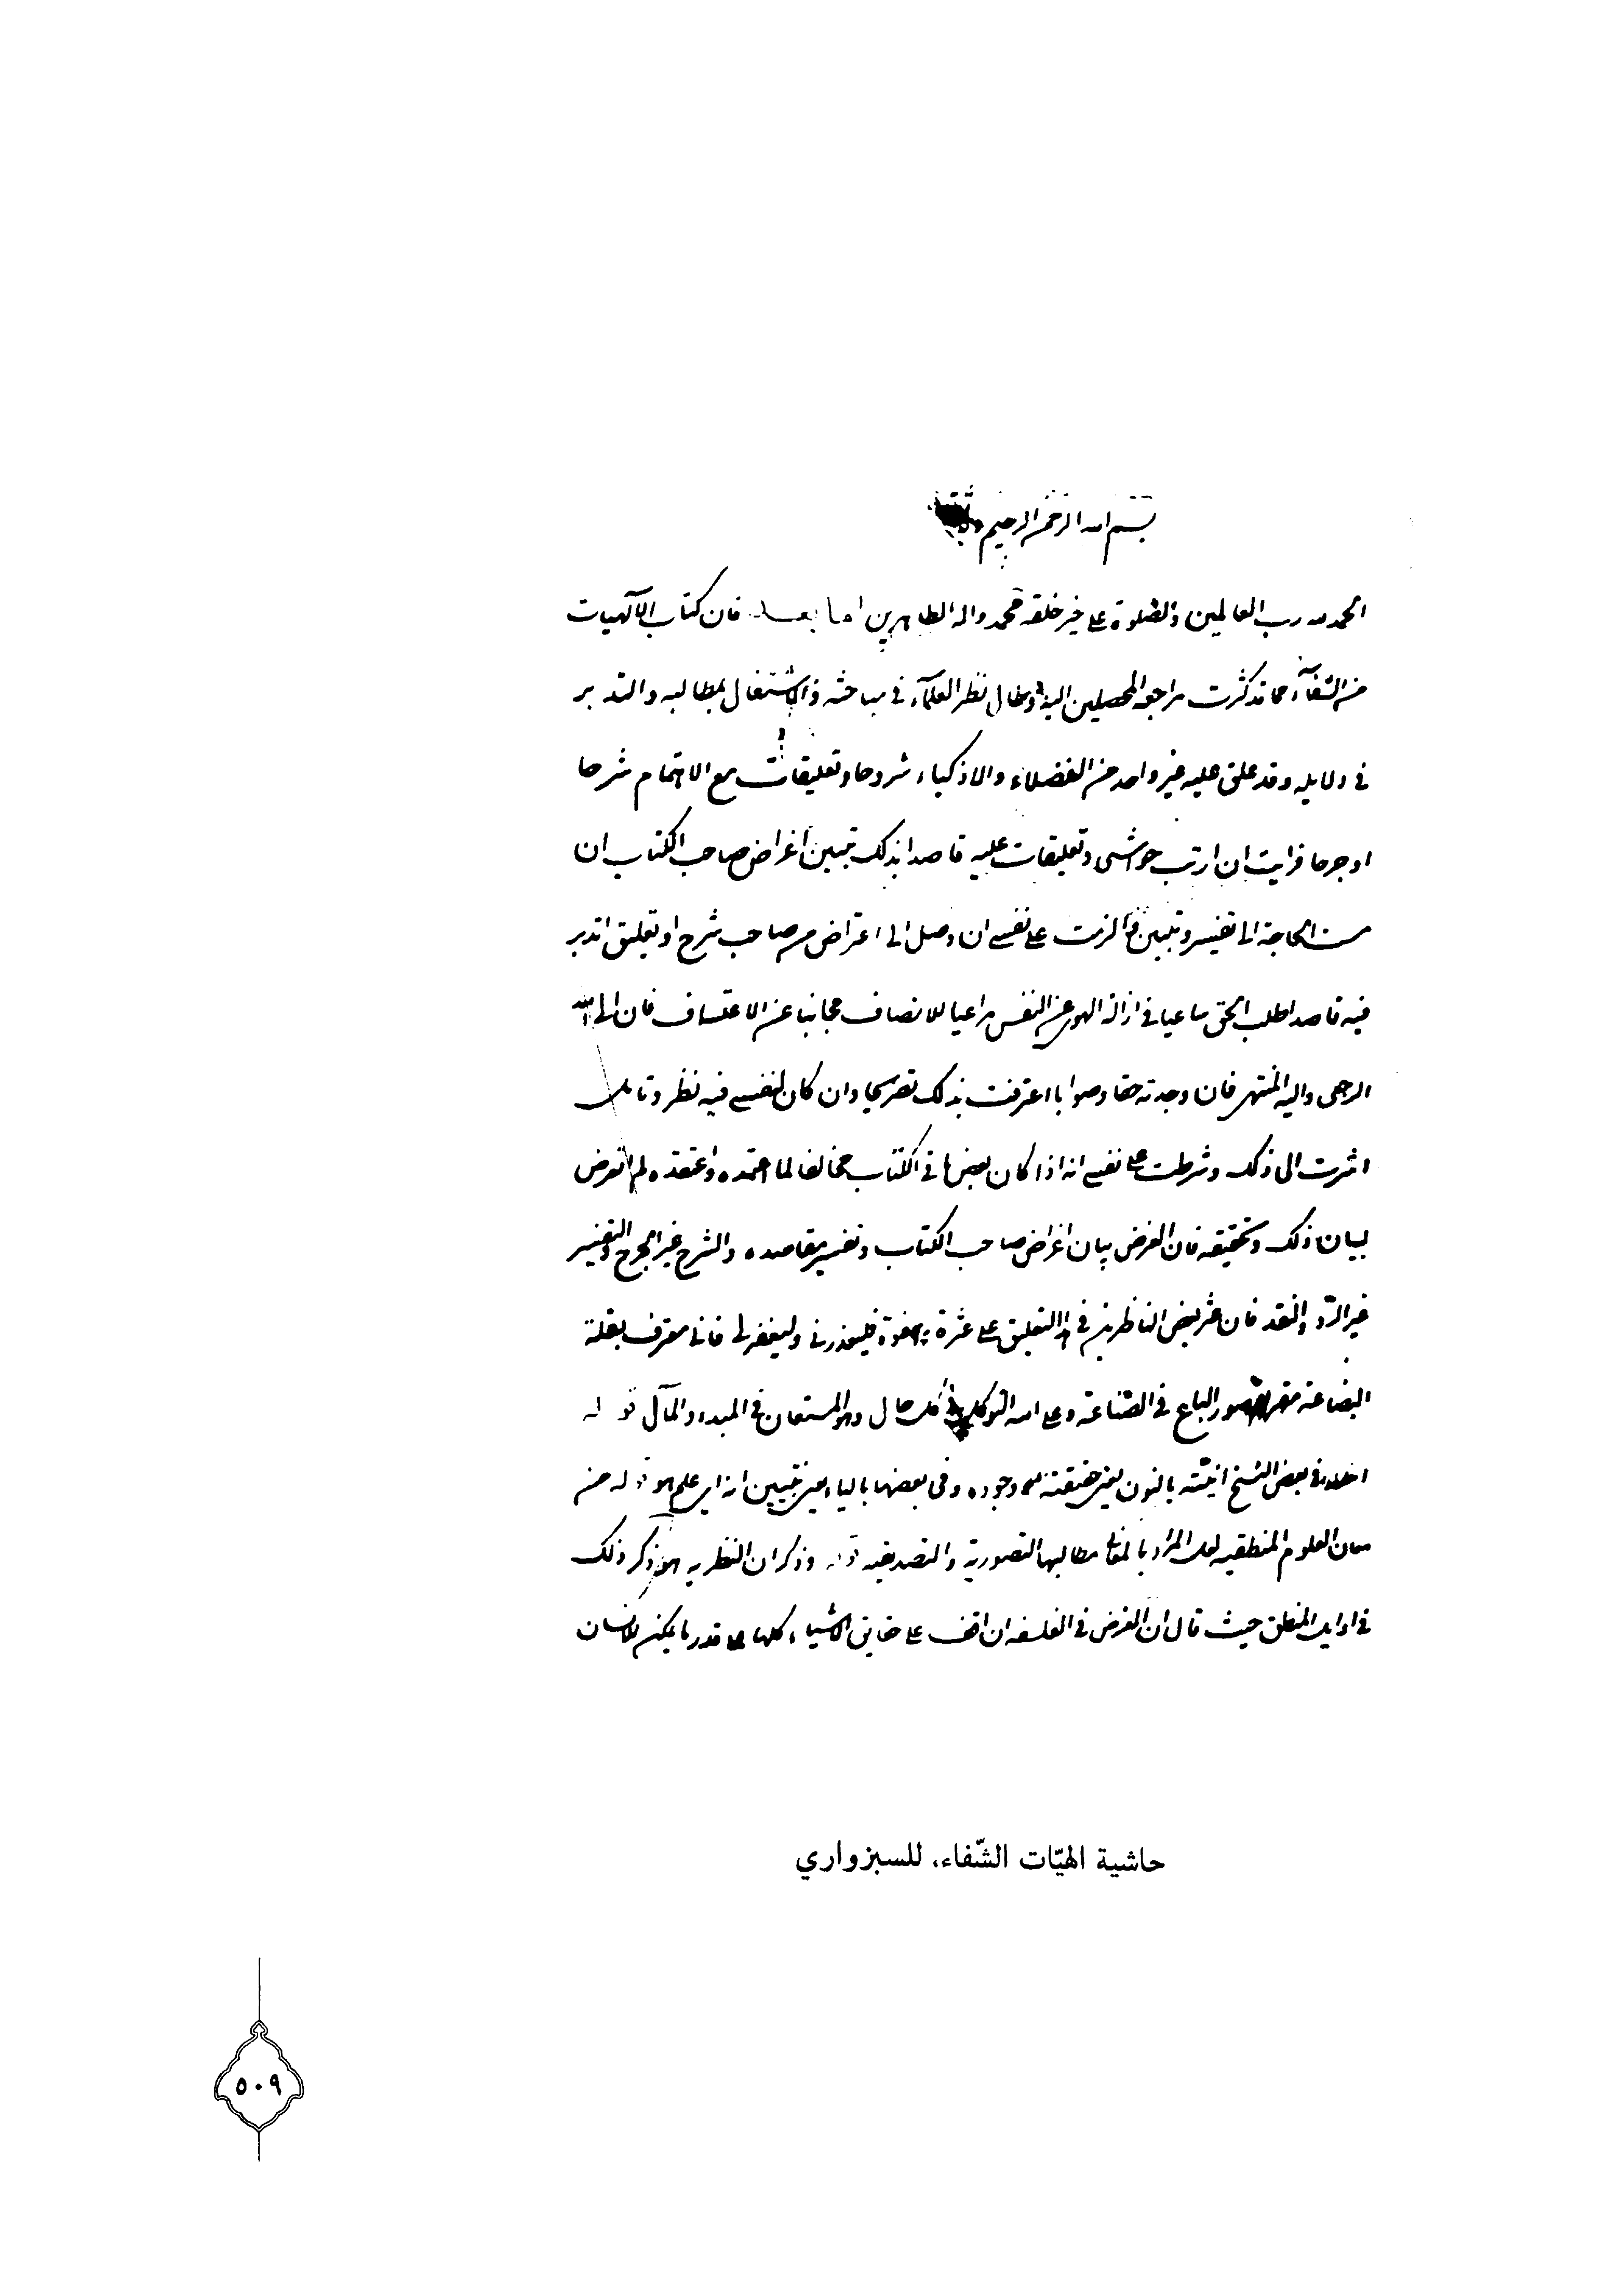 بسم الله الرحمن الرحيم
الحمد لله رب العالمين والصلوة على خير خلقه محمد واله الطاهرين اما بعد فان كتاب الآلهيات
من الشفآء مما قد كثرت مراجعة المحصلين اليه وطال نظر العلمآء في مباحثه والاشتغال بمطالبه والتدبر
في دلايله وقد علق عليه غير واحد من الفضلاء والاذكياء شروحا وتعليقات مع الاهتمام شرحا
او جرحا فرايت ان ارتب حواشى وتعليقات عليه قاصدا بذلك تبيين اغراض صاحب الكتاب ان
مست الحاجة الى تفسير وتبيين والزمت على نفسي ان وصل الى اعتراض من صاحب شرح او تعليق اتدبر
فيه قاصدا طلب الحق ساعيا في ازالة الهوى عن النفس مراعيا للانصاف مجانبا عن الاعتساف فان الى الله
الرجعى واليه المنتهى فان وجدته حقا وصوابا اعترفت بذلك تصريحا وان كان لنفسي فيه نظر وتامل
اشرت الى ذلك وشرطت على نفسي انه اذا كان بعض ما في الكتاب مخالفا لما اعتمده واعتقده لم اتعرض
لبيان ذلك وتحقيقه فان الغرض بيان اغراض صاحب الكتاب وتفسير مقاصده والشرح غير الجرح والتفسير
غير الرد والنقد فان عثر بعض الناظرين في التعليق على عثرة وهفوة فليعذرني وليغفر لى فانى معترف بقلة
البضاعة مقر بقصور الباع في الصناعة وعلى الله التوكل في كل حال وهو المستعان في المبدا والمآل قوله
في بعض النسخ انيّته بالنون يعنى حقيقته ووجوده وفى بعضها بالياء يعنى تبيين انه اى علم هو قوله من
معان العلوم المنطقيه لعل المراد بالمعانى مطالبها التصورية والتصديقيه قوله وذكر ان النظريه هو ذكر ذلك
في اوايل المنطق حيث قال ان الغرض في الفلسفه ان اقف على حقايق الاشياء كلها على قدر ما يمكن للانسان
حاشية الهيّات الشّفاء، للسبزواري
٥٠٩